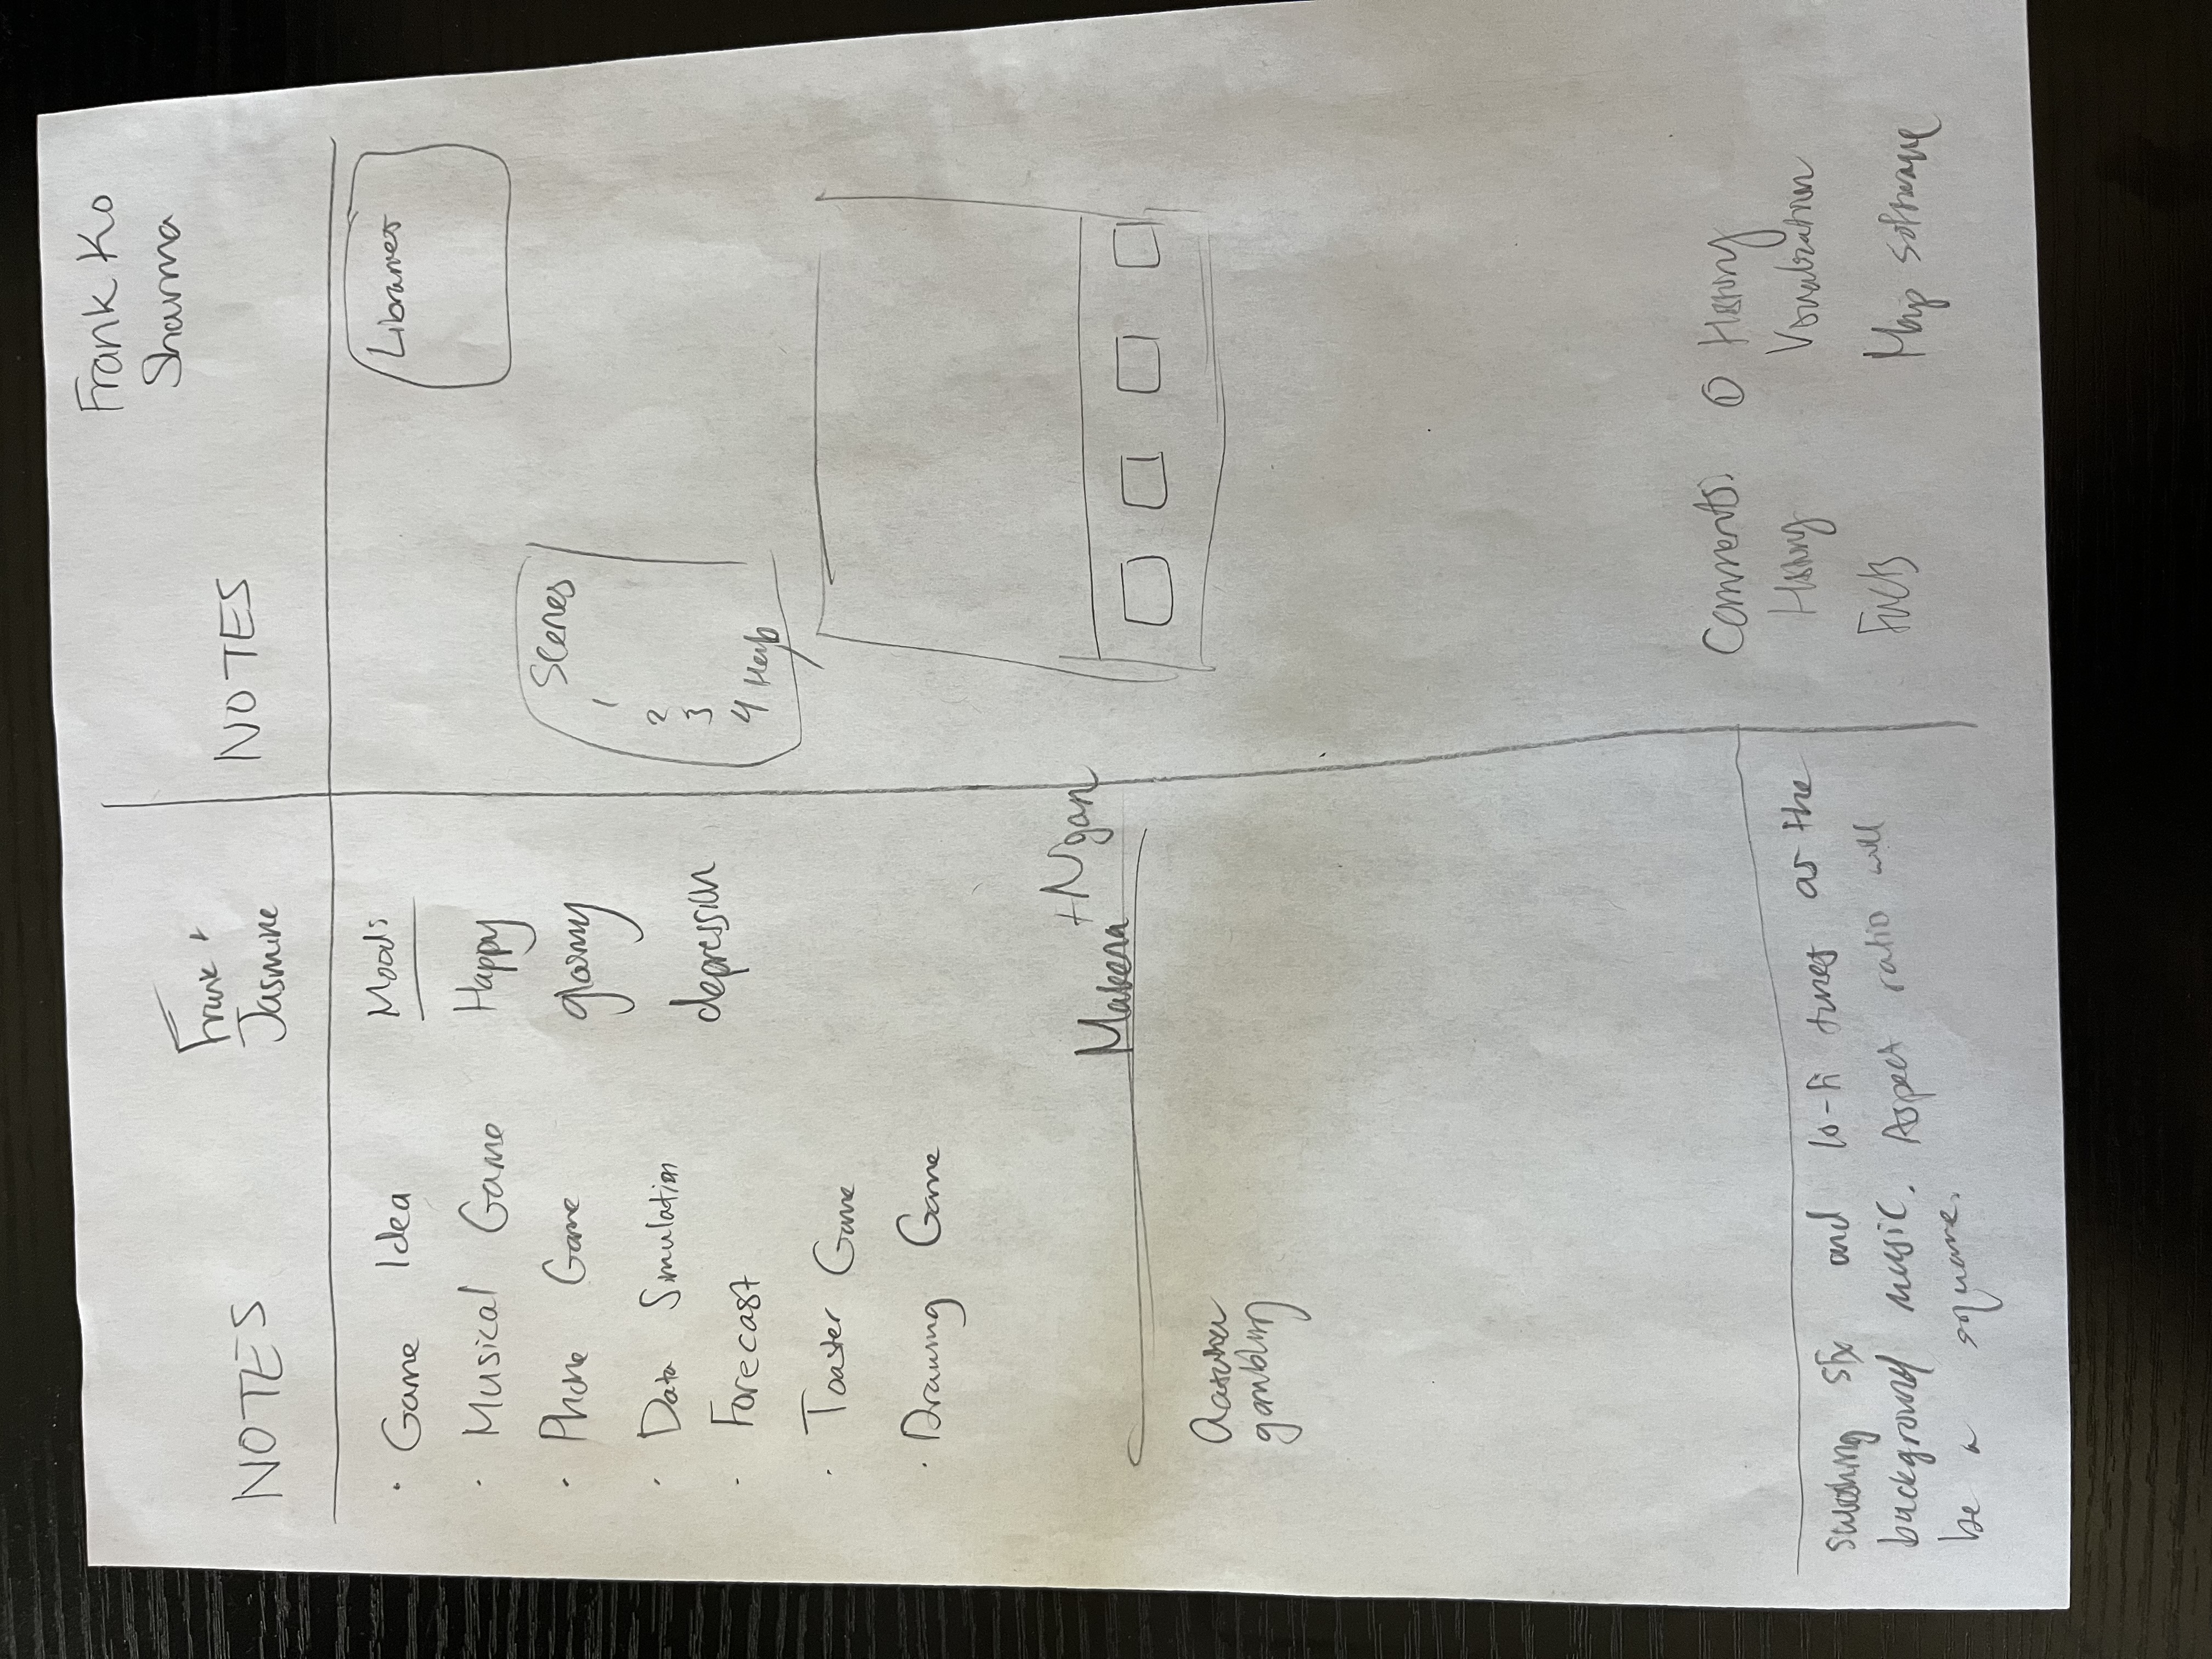 Frank Ko
Sharma
Frank +
Jasmine
NOTES
NOTES
· Game Idea
· Musical Game
· Phone Game
· Data Simulation
· Forecast
· Toaster Game
· Drawing Game
Moods
Happy
gloomy
depression
Makena + Ngan
gambling
swooshing sfx and lo-fi tunes as the
background music. Aspect ratio will
be a square.
Libraries
Scenes
1
2
3
4
Comments:
History
Facts
① History
Visualization
Map software